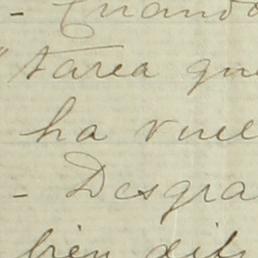 - Cuando
" tarea que
ha vuel
- Desgra
bien dif